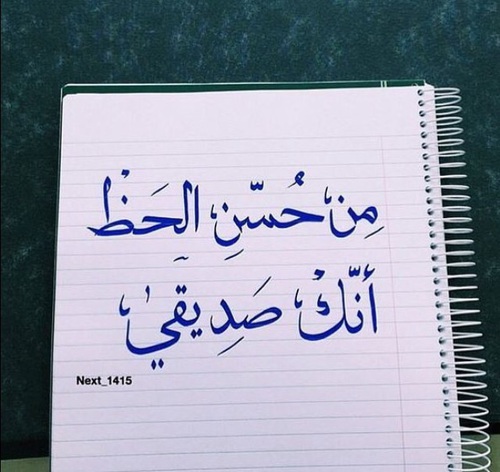 مِن حُسّنِ الحَظْ
أنّكْ صَدِيقيْ
Next_1415